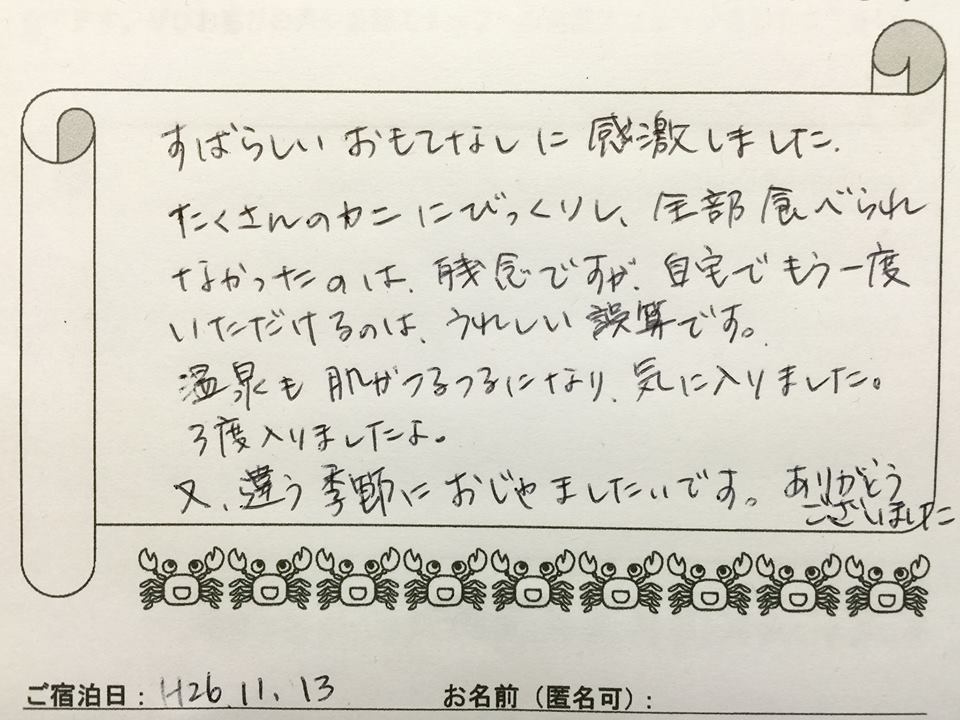 すばらしい おもてなしに 感激しました.
たくさんのカニ にびっくりし、全部 食べられ
なかったのは、残念ですが、自宅でもう一度
いただけるのは、うれしい 誤算です。
温泉も 肌がつるつるになり、気に入りました。
3度入りましたよ。
又、違う 季節に おじゃましたいです。ありがとう
ございました
ご宿泊日：H26.11.13
お名前（匿名可）：